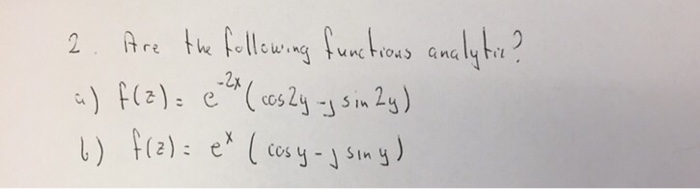 2. Are the following functions analytic?
a) f(z) = e^{-2x} (cos2y - j sin 2y)
b) f(z) = e^{x} (cosy - j sin y)